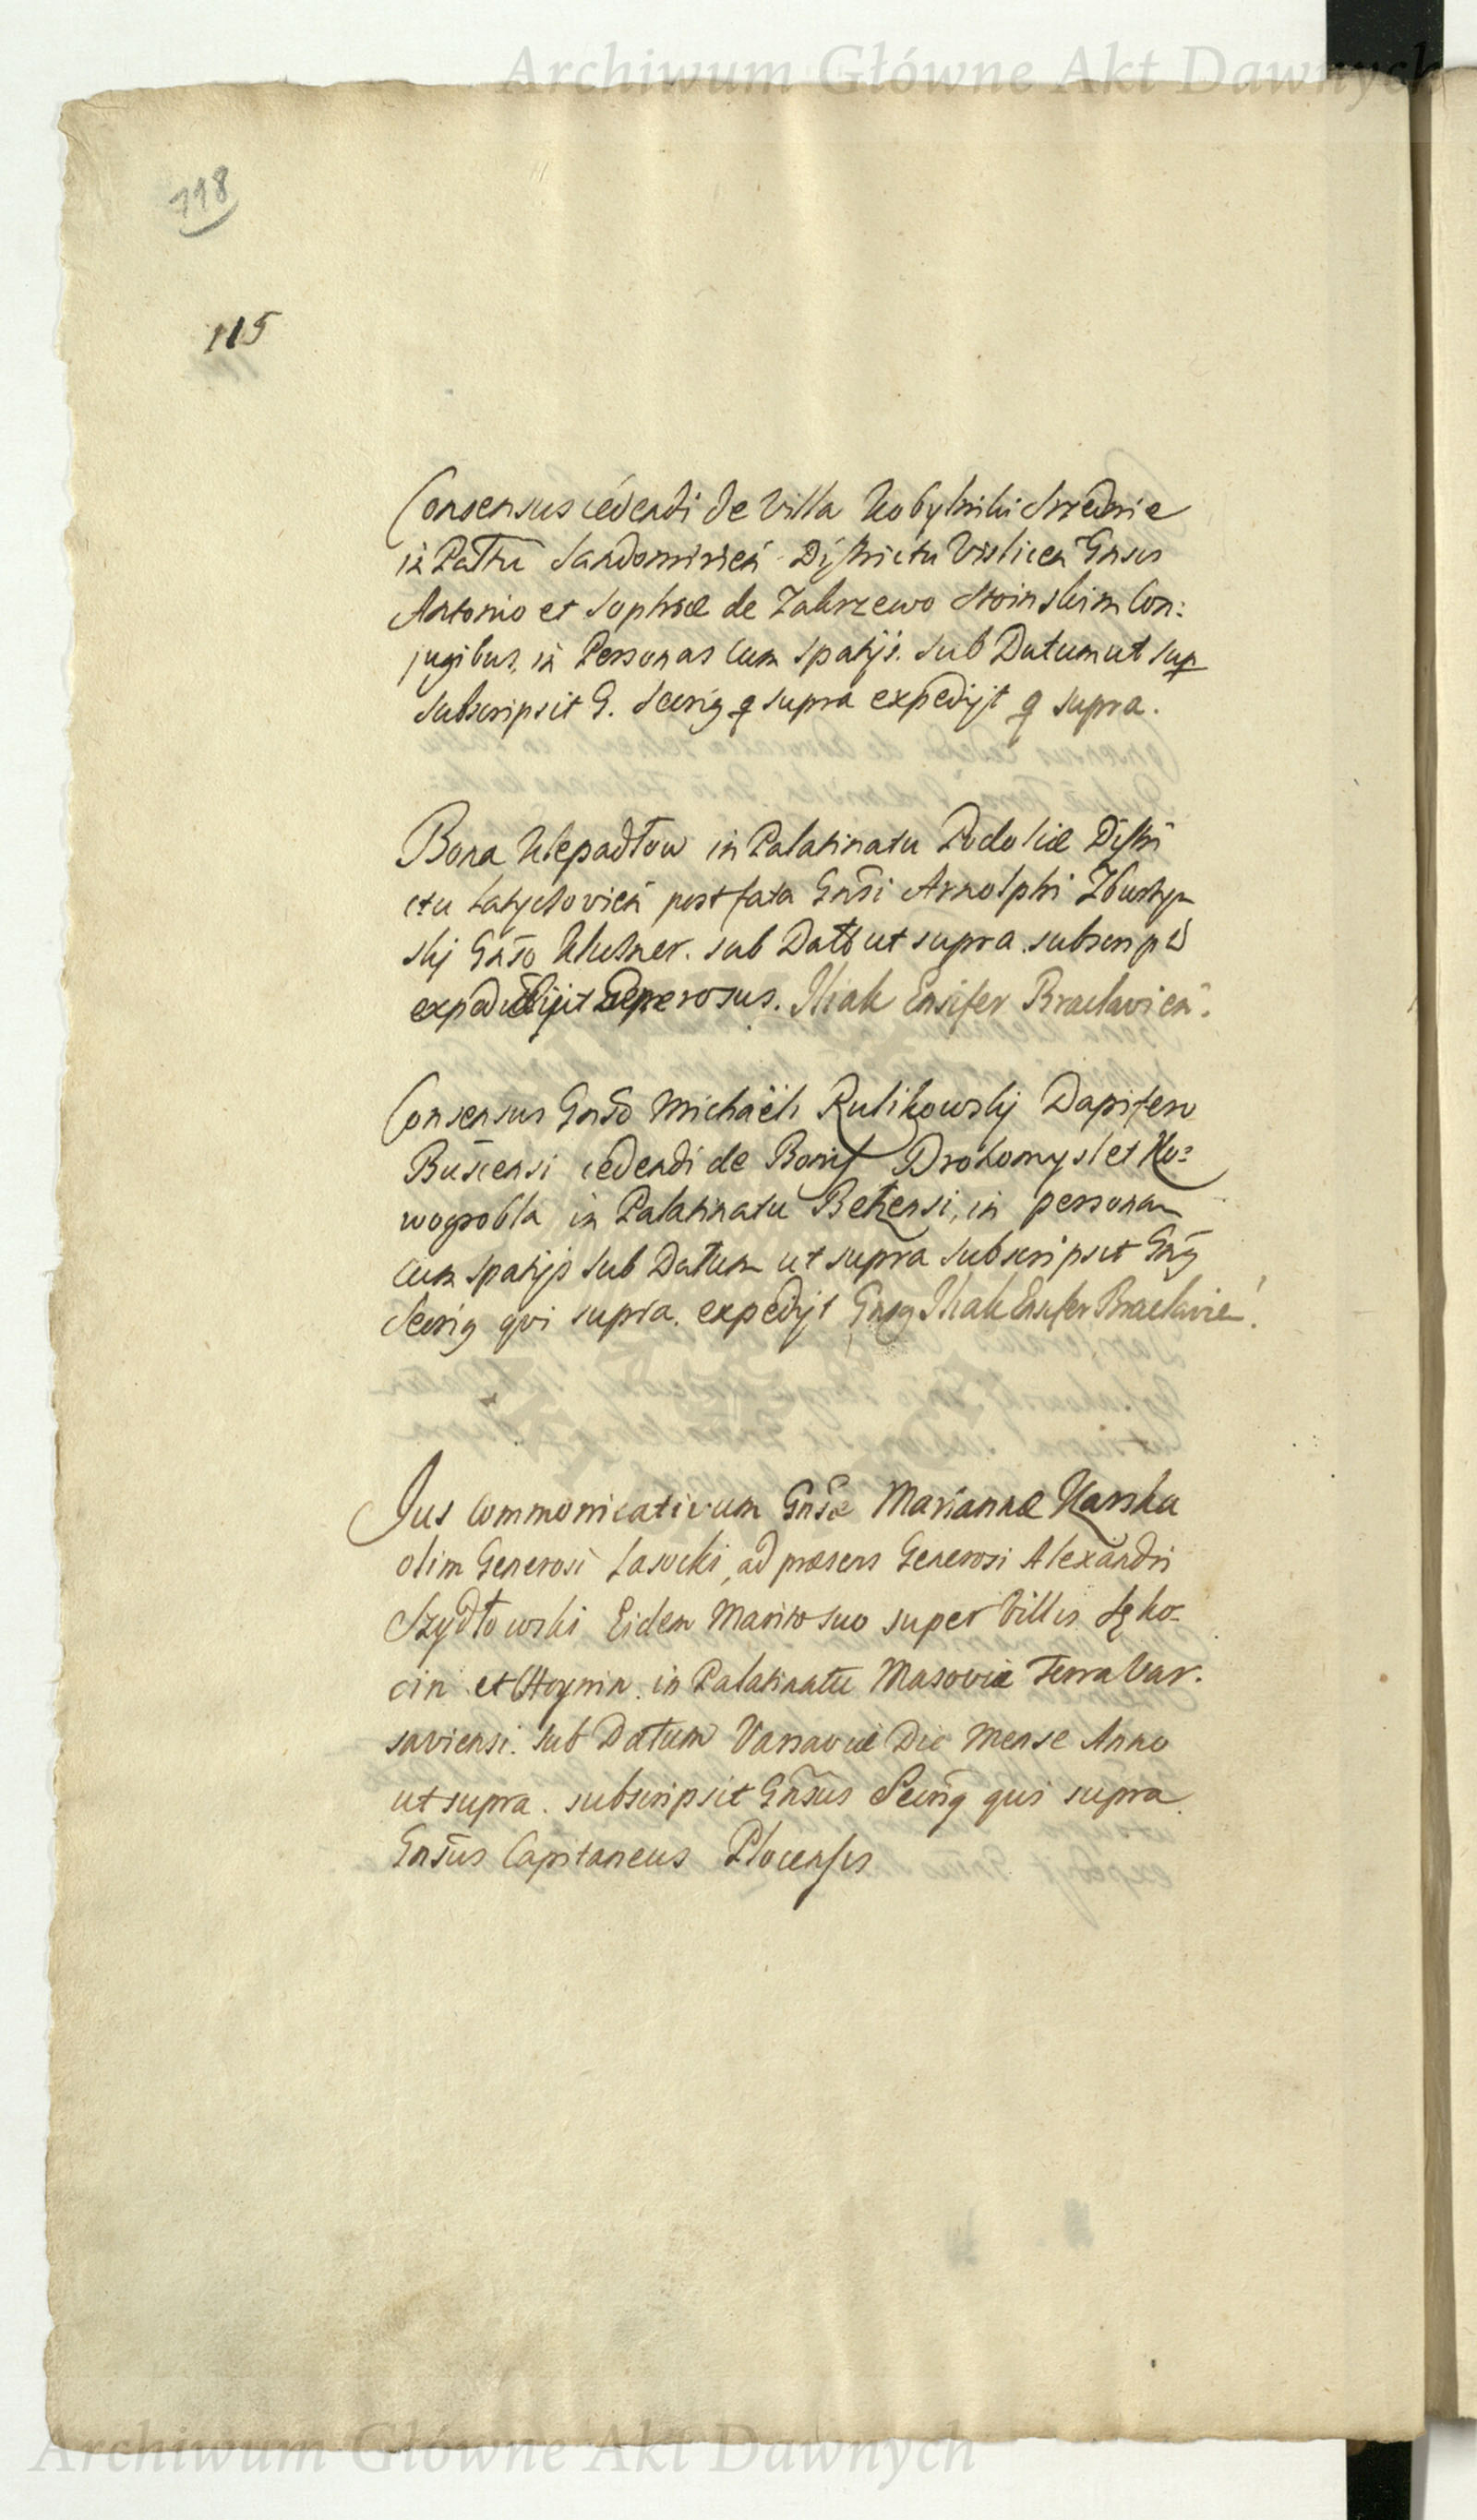 Archiwum Główne Akt Dawnych
718
115
Consensus cedendi de Villa Kobylniki Srzednie
in Pāltu Sandomirien Districtu Vislicen Gnsis
Antonio et Sophiæ de Zakrzewo Stoinskim Con:
jugibus, in Personas cum spatijs. sub Datum ut sup
subscripsit G. Secrig q supra expedijt q supra.
Bona Klepadłow in Palatinatu Podoliæ Distri
ctu Latyczovien post fata Gnsi Arnolphi
skij Gnso Klusner. sub Datto ut supra. subscrips
Generosus. Iliak Ensifer Braclavien.
Consensus Gnso Michaëli Rulikowskij Dapifero
Buscensi cedendi de Bonis Drohomysl et No=
wogrobla in Palatinatu Belzensi, in personam
cum spatijs sub Datum ut supra subscripsit Gng
Secrig qvi supra. expedijt Gnsg Iliak Ensifer Braclavien.
Jus Communicativum Gnsæ Mariannæ Karska
olim Generosi Lasocki, ad præsens Generosi Alexandri
Szydłowski Eidem Marito suo super Villis Sęko=
cin et in Palatinatu Masoviæ Terra Var=
saviensi. sub Datum Varsaviæ Die Mense Anno
ut supra. subscripsit Gnsus Secrig qui supra
Gnsus Capitaneus Plocensis
Archiwum Główne Akt Dawnych